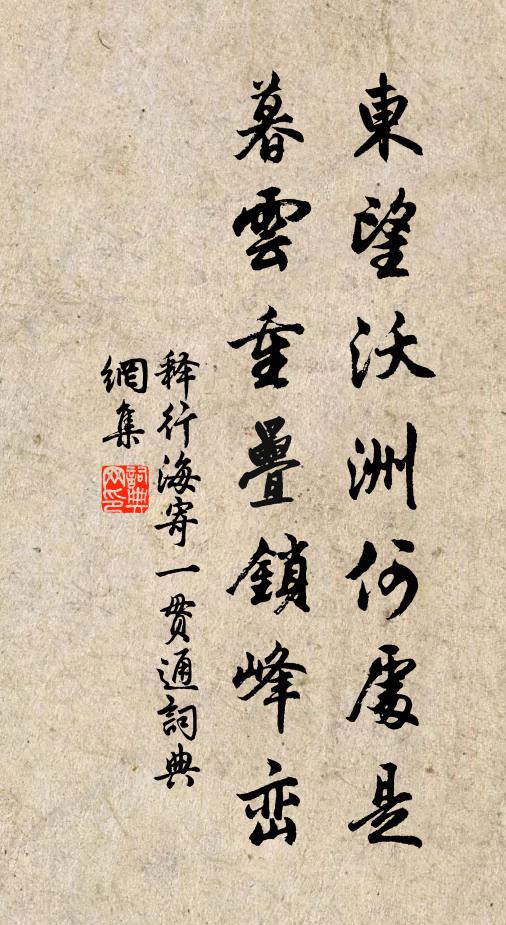 東望沃洲何處是
暮雲重疊鎖峰峦
释行海寄一貫通詞典
網集
詞典
网印